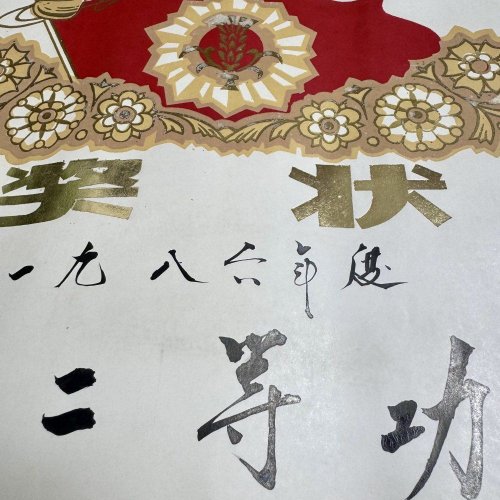 奖状
一九八六年度
二等功